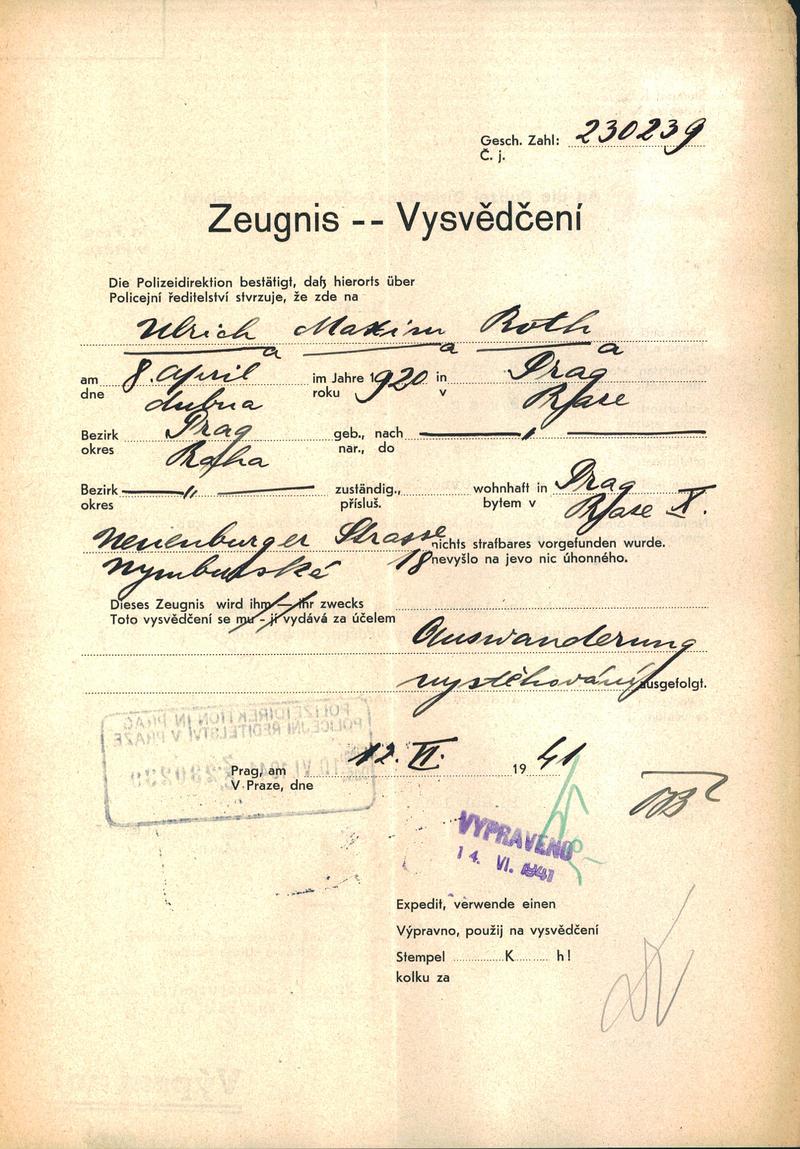 Gesch. Zahl: 230239
Č. j.
Zeugnis -- Vysvědčení
Die Polizeidirektion bestätigt, daß hierorts über
Policejní ředitelství stvrzuje, že zde na
Ulrich Maxim Roth
a a a
am 8. April im Jahre 1920 in Prag
dne dubna roku v Praze
Bezirk Prag geb., nach — " —
okres Praha nar., do
Bezirk — " — zuständig., wohnhaft in Prag
okres přísluš. bytem v Praze X.
Neuenburger Strasse nichts strafbares vorgefunden wurde.
Nymburská 18 nevyšlo na jevo nic úhonného.
Dieses Zeugnis wird ihm — ihr zwecks
Toto vysvědčení se mu - jí vydává za účelem
Auswanderung
vystěhování ausgefolgt.
POLIZEIDIREKTION IN PRAG
POLICEJNÍ ŘEDITELSTVÍ V PRAZE
10 VI 1941 230239
Prag, am 12. VI. 1941
V Praze, dne
VYPRAVENO
14. VI. 1941
Expedit, verwende einen
Výpravno, použij na vysvědčení
Stempel K h!
kolku za